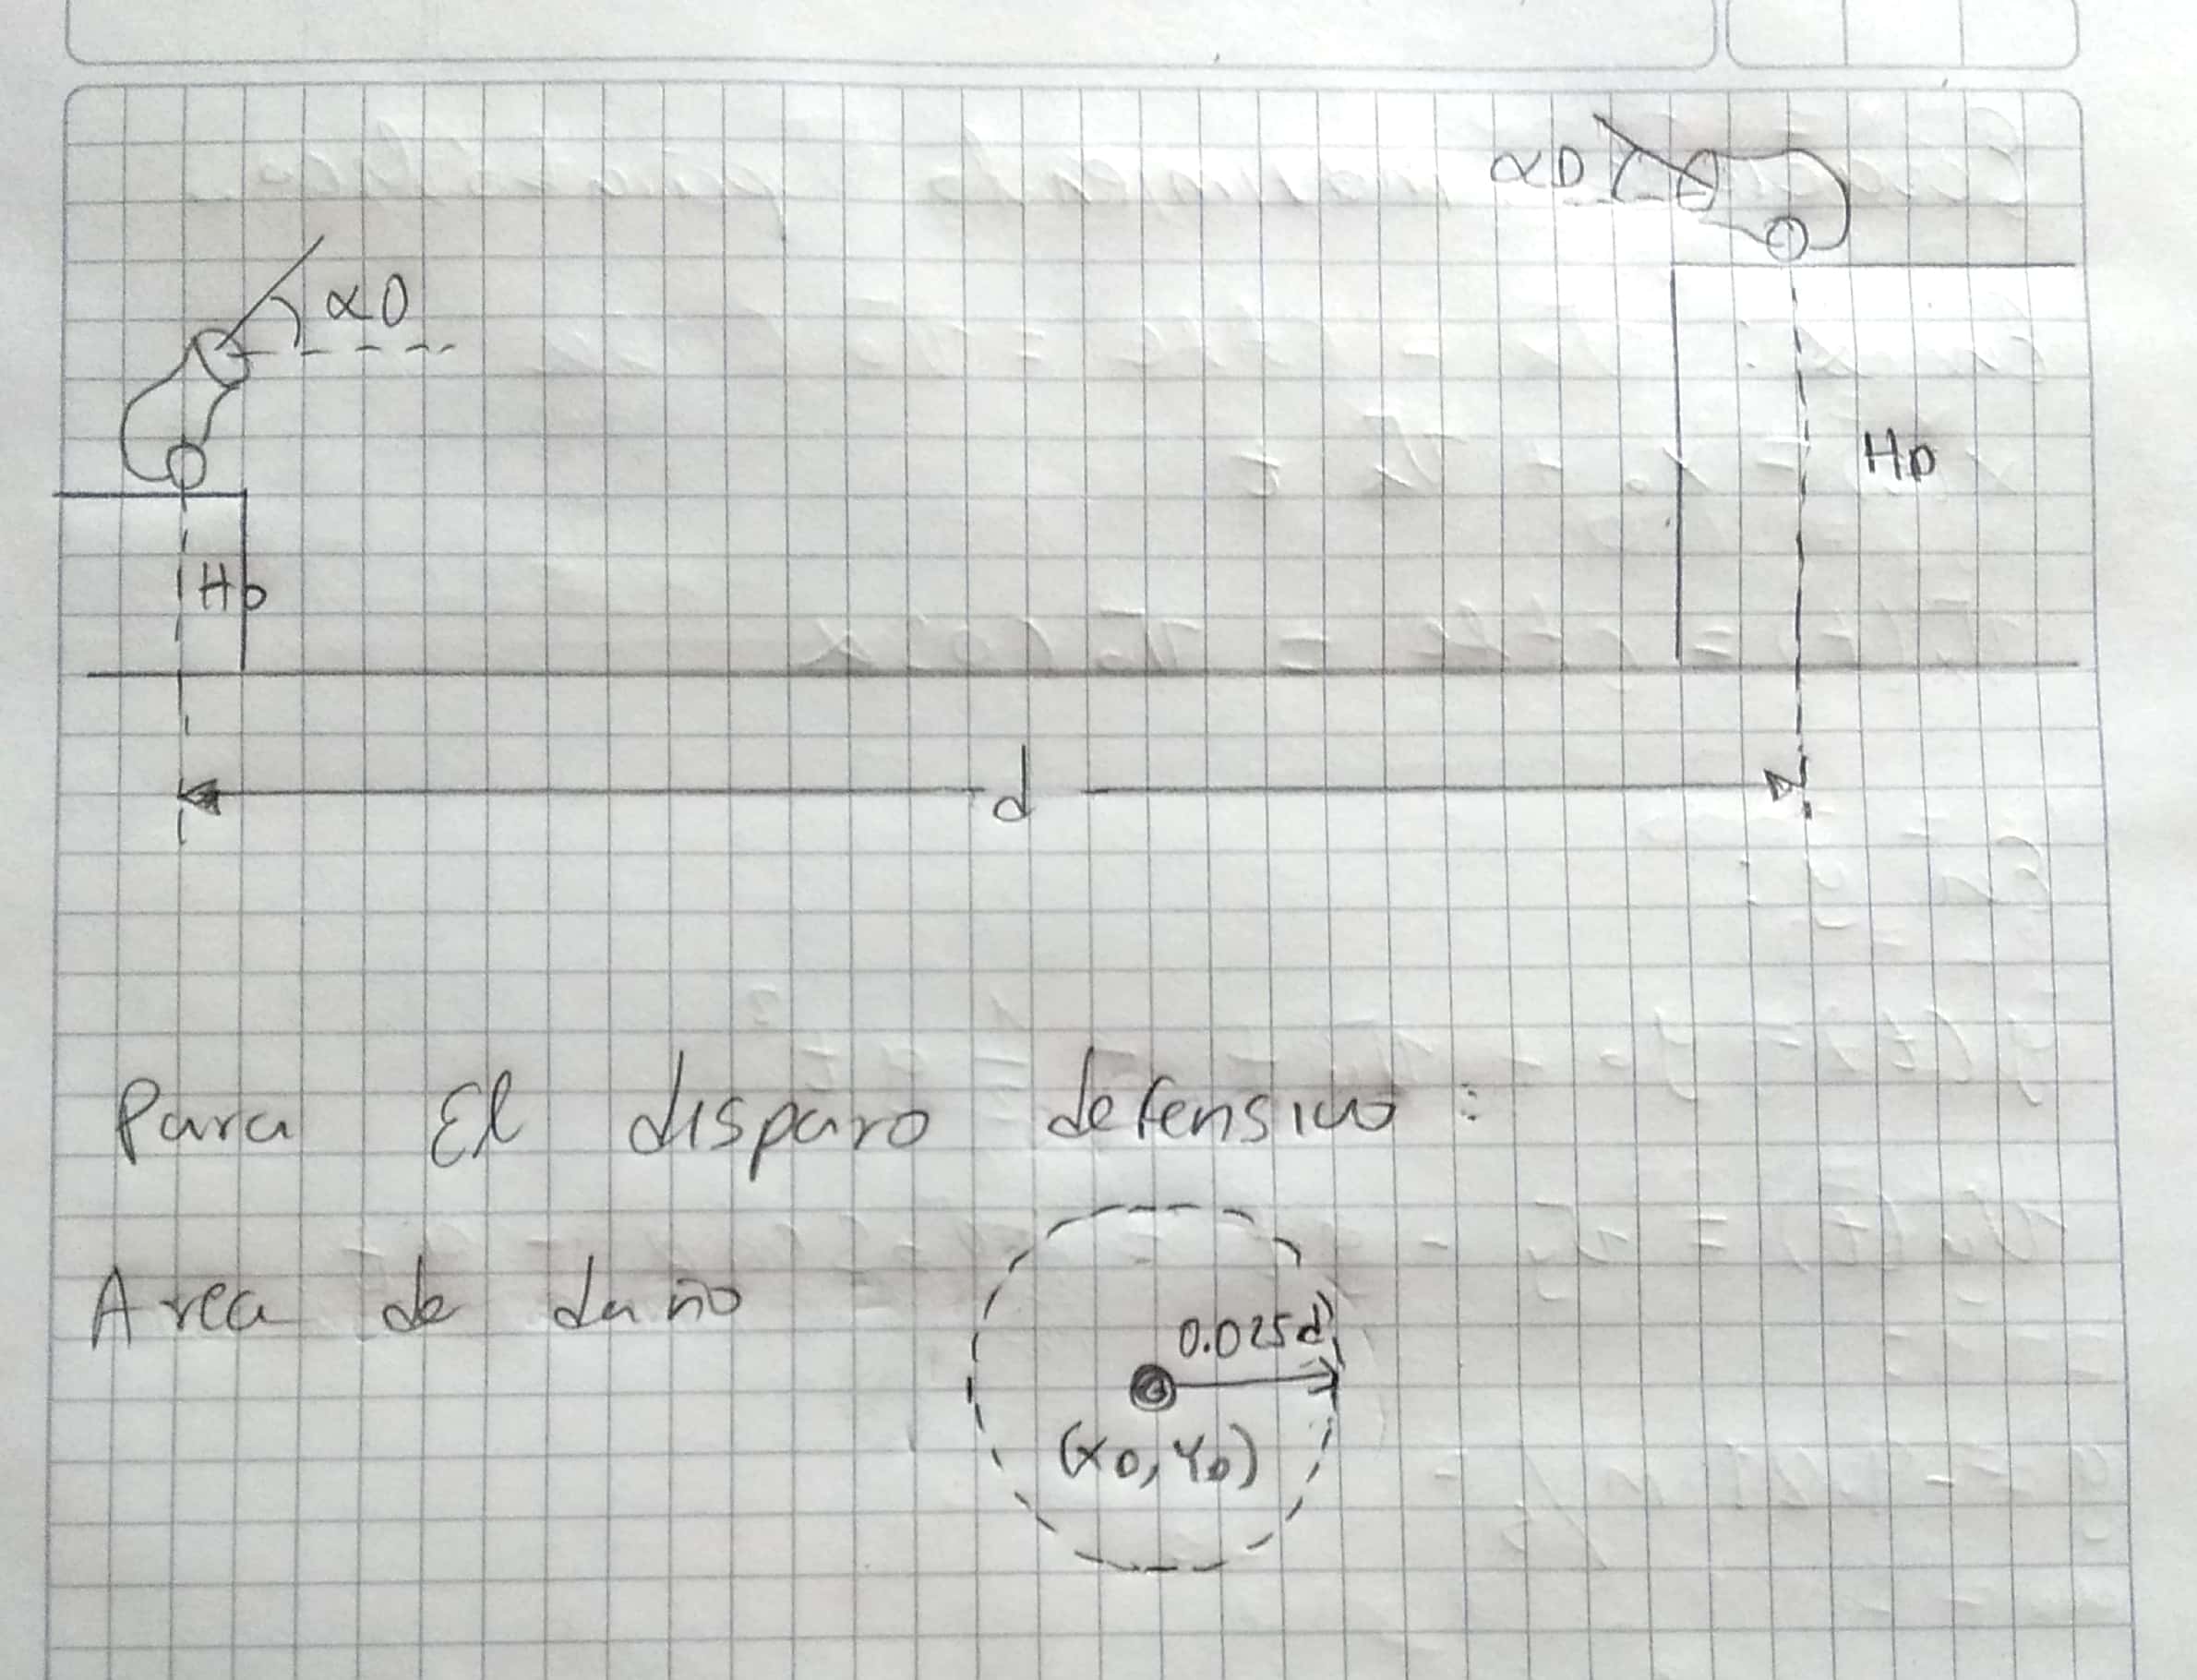 αD
αO
HD
Ho
d
Para El disparo defensivo:
Area de daño
0.025d
(XD, YD)